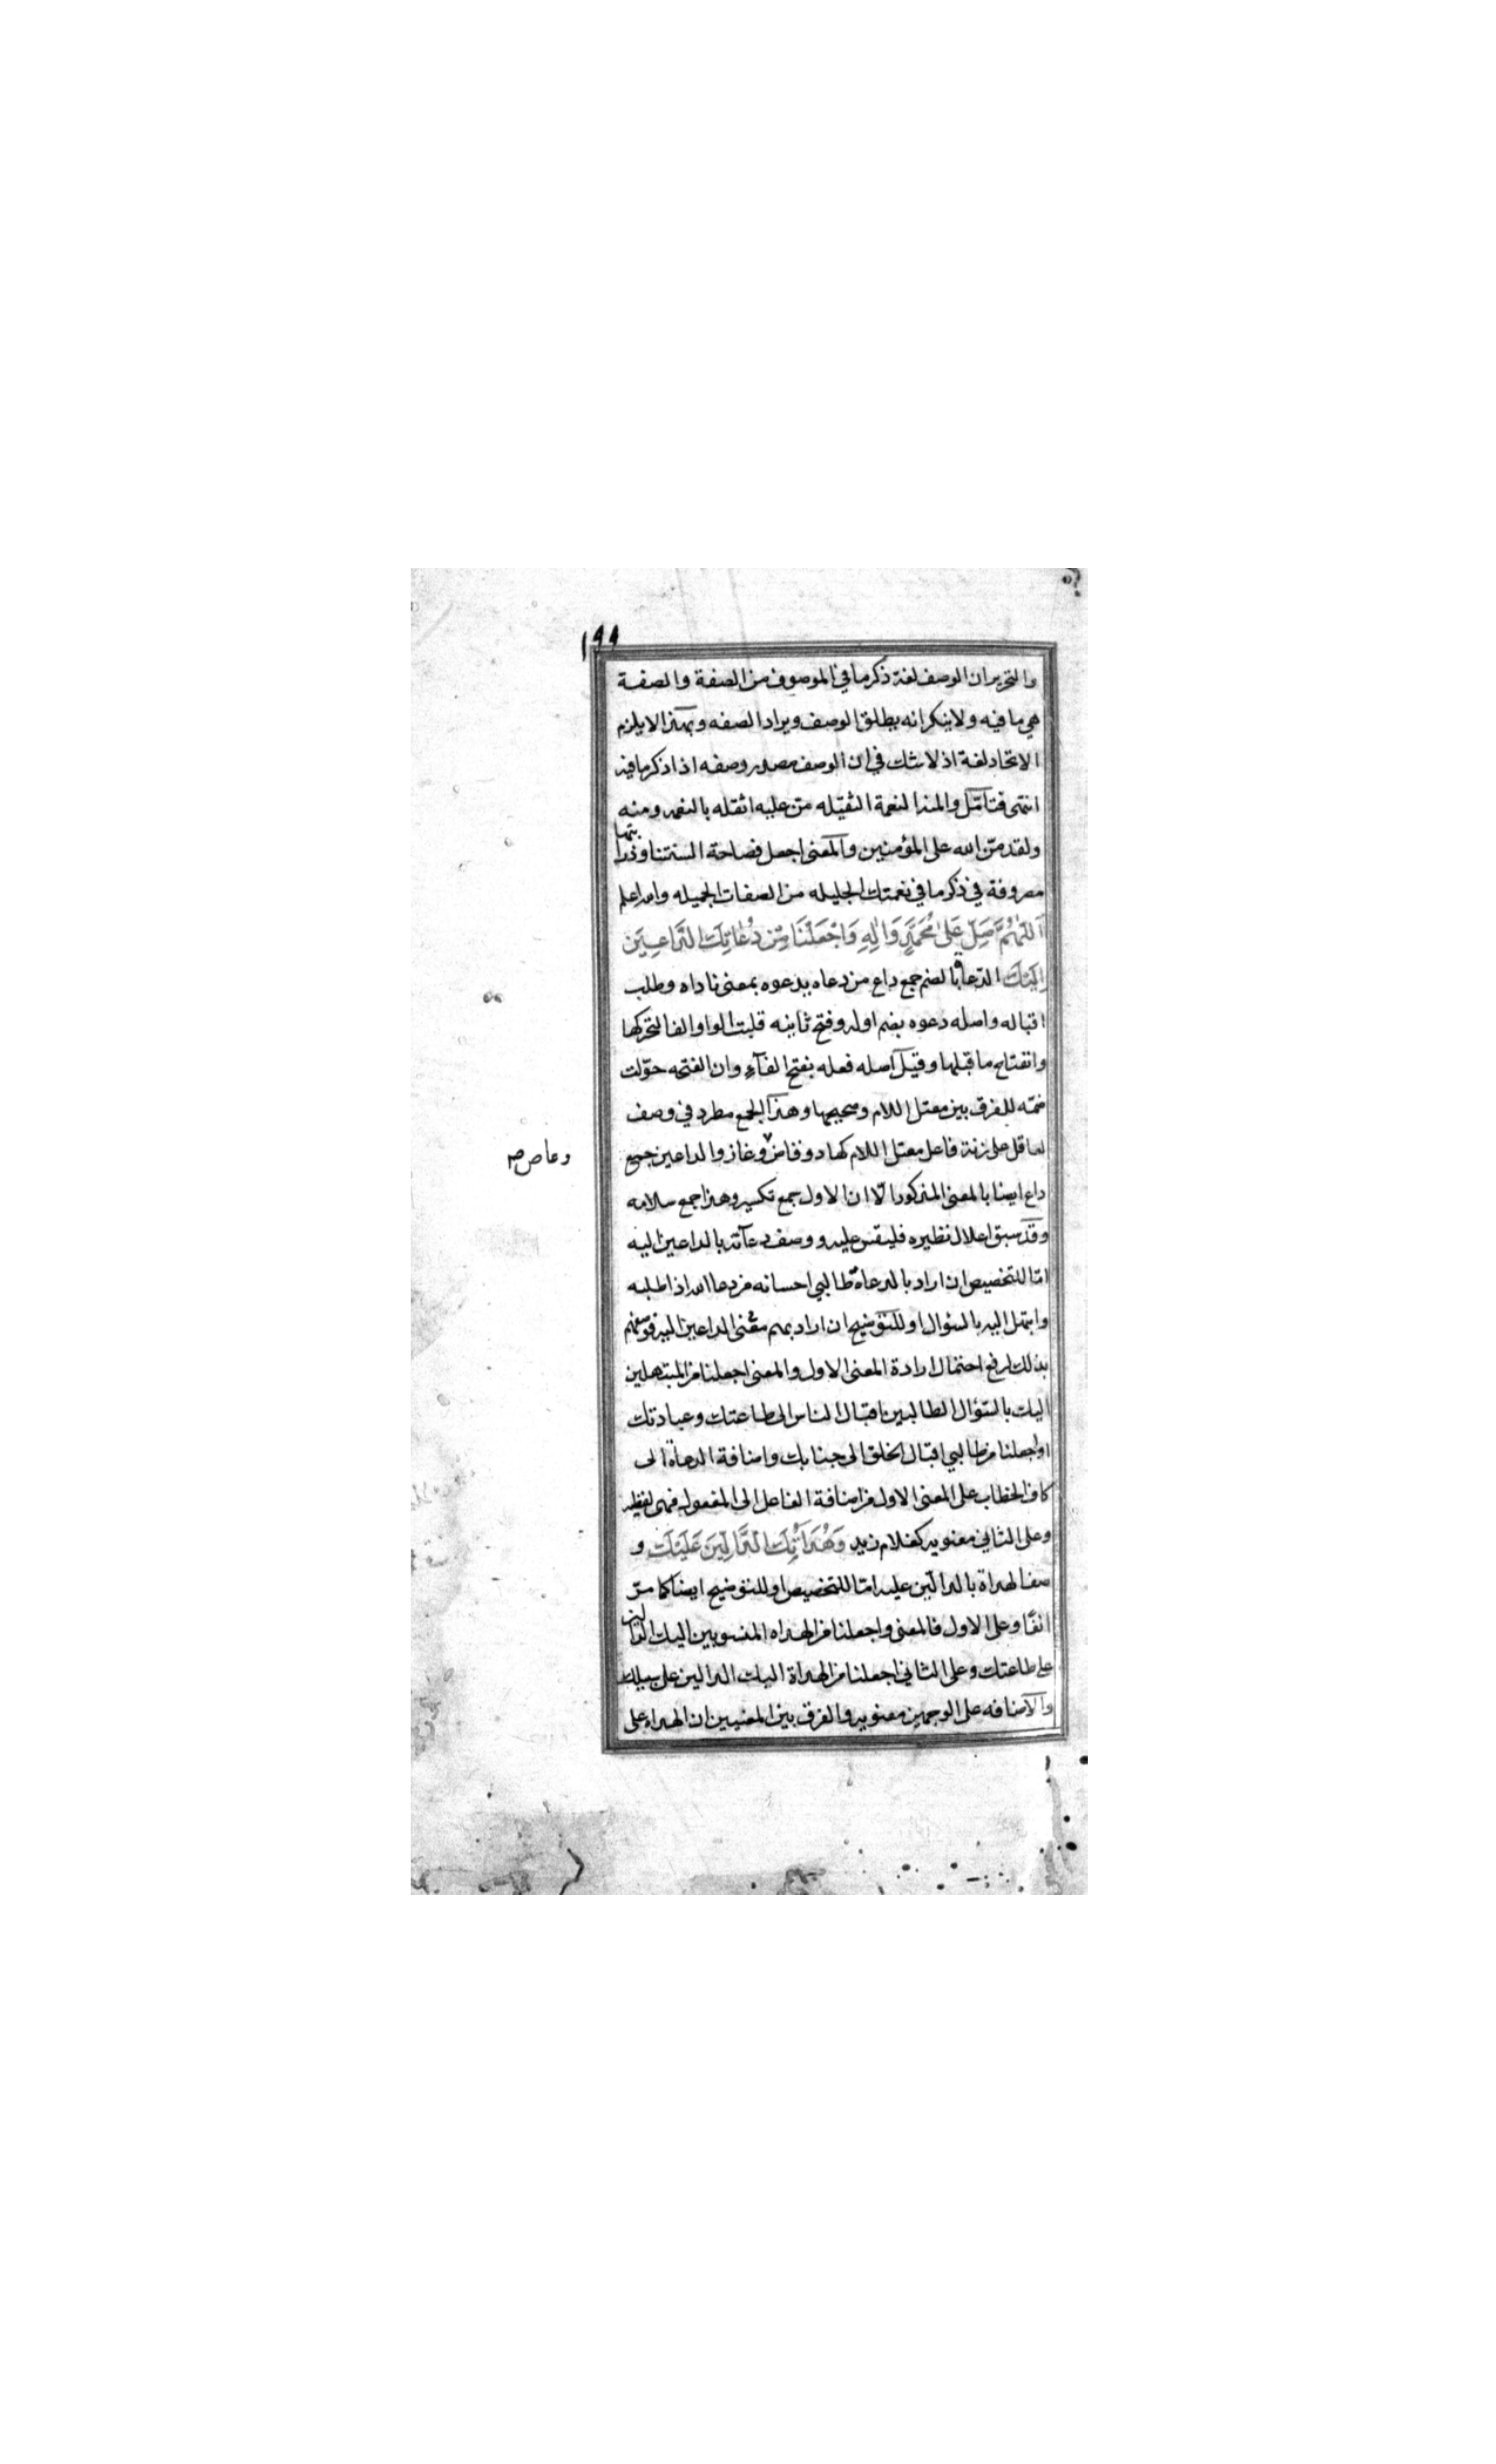 ١٩٩
والتحرير ان الوصف لغة ذكر ما في الموصوف من الصفة والصفة
هي ما فيه ولا ينكر انه يطلق الوصف ويراد الصفه وبهذا لا يلزم
الاتحاد لغة اذ لا شك في ان الوصف مصدر وصفه اذا ذكر ما فيه
انتهى فتامّل والمنه النعمة الثقيله منّ عليه اثقله بالنعمه ومنه
ولقد منّ الله على المؤمنين والمعنى اجعل فصاحة السنتنا وذرابتها
مصروفة في ذكر ما في نعمتك الجليله من الصفات الجميله والله اعلم
اَللّٰهُمَّ صَلِّ عَلىٰ مُحَمَّدٍ وَاٰلِهِ وَاجْعَلْنَا مِنْ دُعٰاتِكَ الدَّاعِيِنَ
اِلَيْكَ الدعاة بالضم جمع داع من دعاه يدعوه بمعنى ناداه وطلب
اقباله واصله دعوه بضم اوله وفتح ثانيه قلبت الواو الفا لتحركها
وانفتاح ما قبلها وقيل اصله فعله بفتح الفآء وان الفتحه حوّلت
ضمّه للفرق بين معتل اللام وصحيحها وهذا الجمع مطرد في وصف
لعاقل على زنة فاعل معتل اللام كهاد وقاض وغاز والداعين جمع
وعاص صح
داع ايضا بالمعنى المذكور الّا ان الاول جمع تكسير وهذا جمع سلامه
وقد سبق اعلال نظيره فليقس عليه ووصف دعآته بالداعين اليه
امّا للتخصيص ان اراد بالدعاة طالبي احسانه من دعا الله اذا طلبه
وابتهل اليه بالسؤال او للتوضيح ان اراد بهم معنى الداعين اليه فوصفهم
بذلك لرفع احتمال ارادة المعنى الاول والمعنى اجعلنا من المبتهلين
اليك بالسّؤال الطالبين اقبال الناس الى طاعتك وعبادتك
او اجعلنا من طالبي اقبال الخلق الى جنابك واضافة الدعاة الى
كاف الخطاب على المعنى الاول من اضافة الفاعل الى المفعول فهي لفظيه
وعلى الثاني معنويه كغلام زيد وَهُدَاتِكَ الدَّالّيِنَ عَلَيْكَ و
صف الهداة بالدالّين عليه امّا للتخصيص او للتوضيح ايضا كما مرّ
انفًا وعلى الاول فالمعنى واجعلنا من الهداه المنسوبين اليك الدالين
على طاعتك وعلى الثاني اجعلنا من الهداة اليك الدالين على سبيلك
والاضافه على الوجهين معنويه والفرق بين المعنيين ان الهداء على